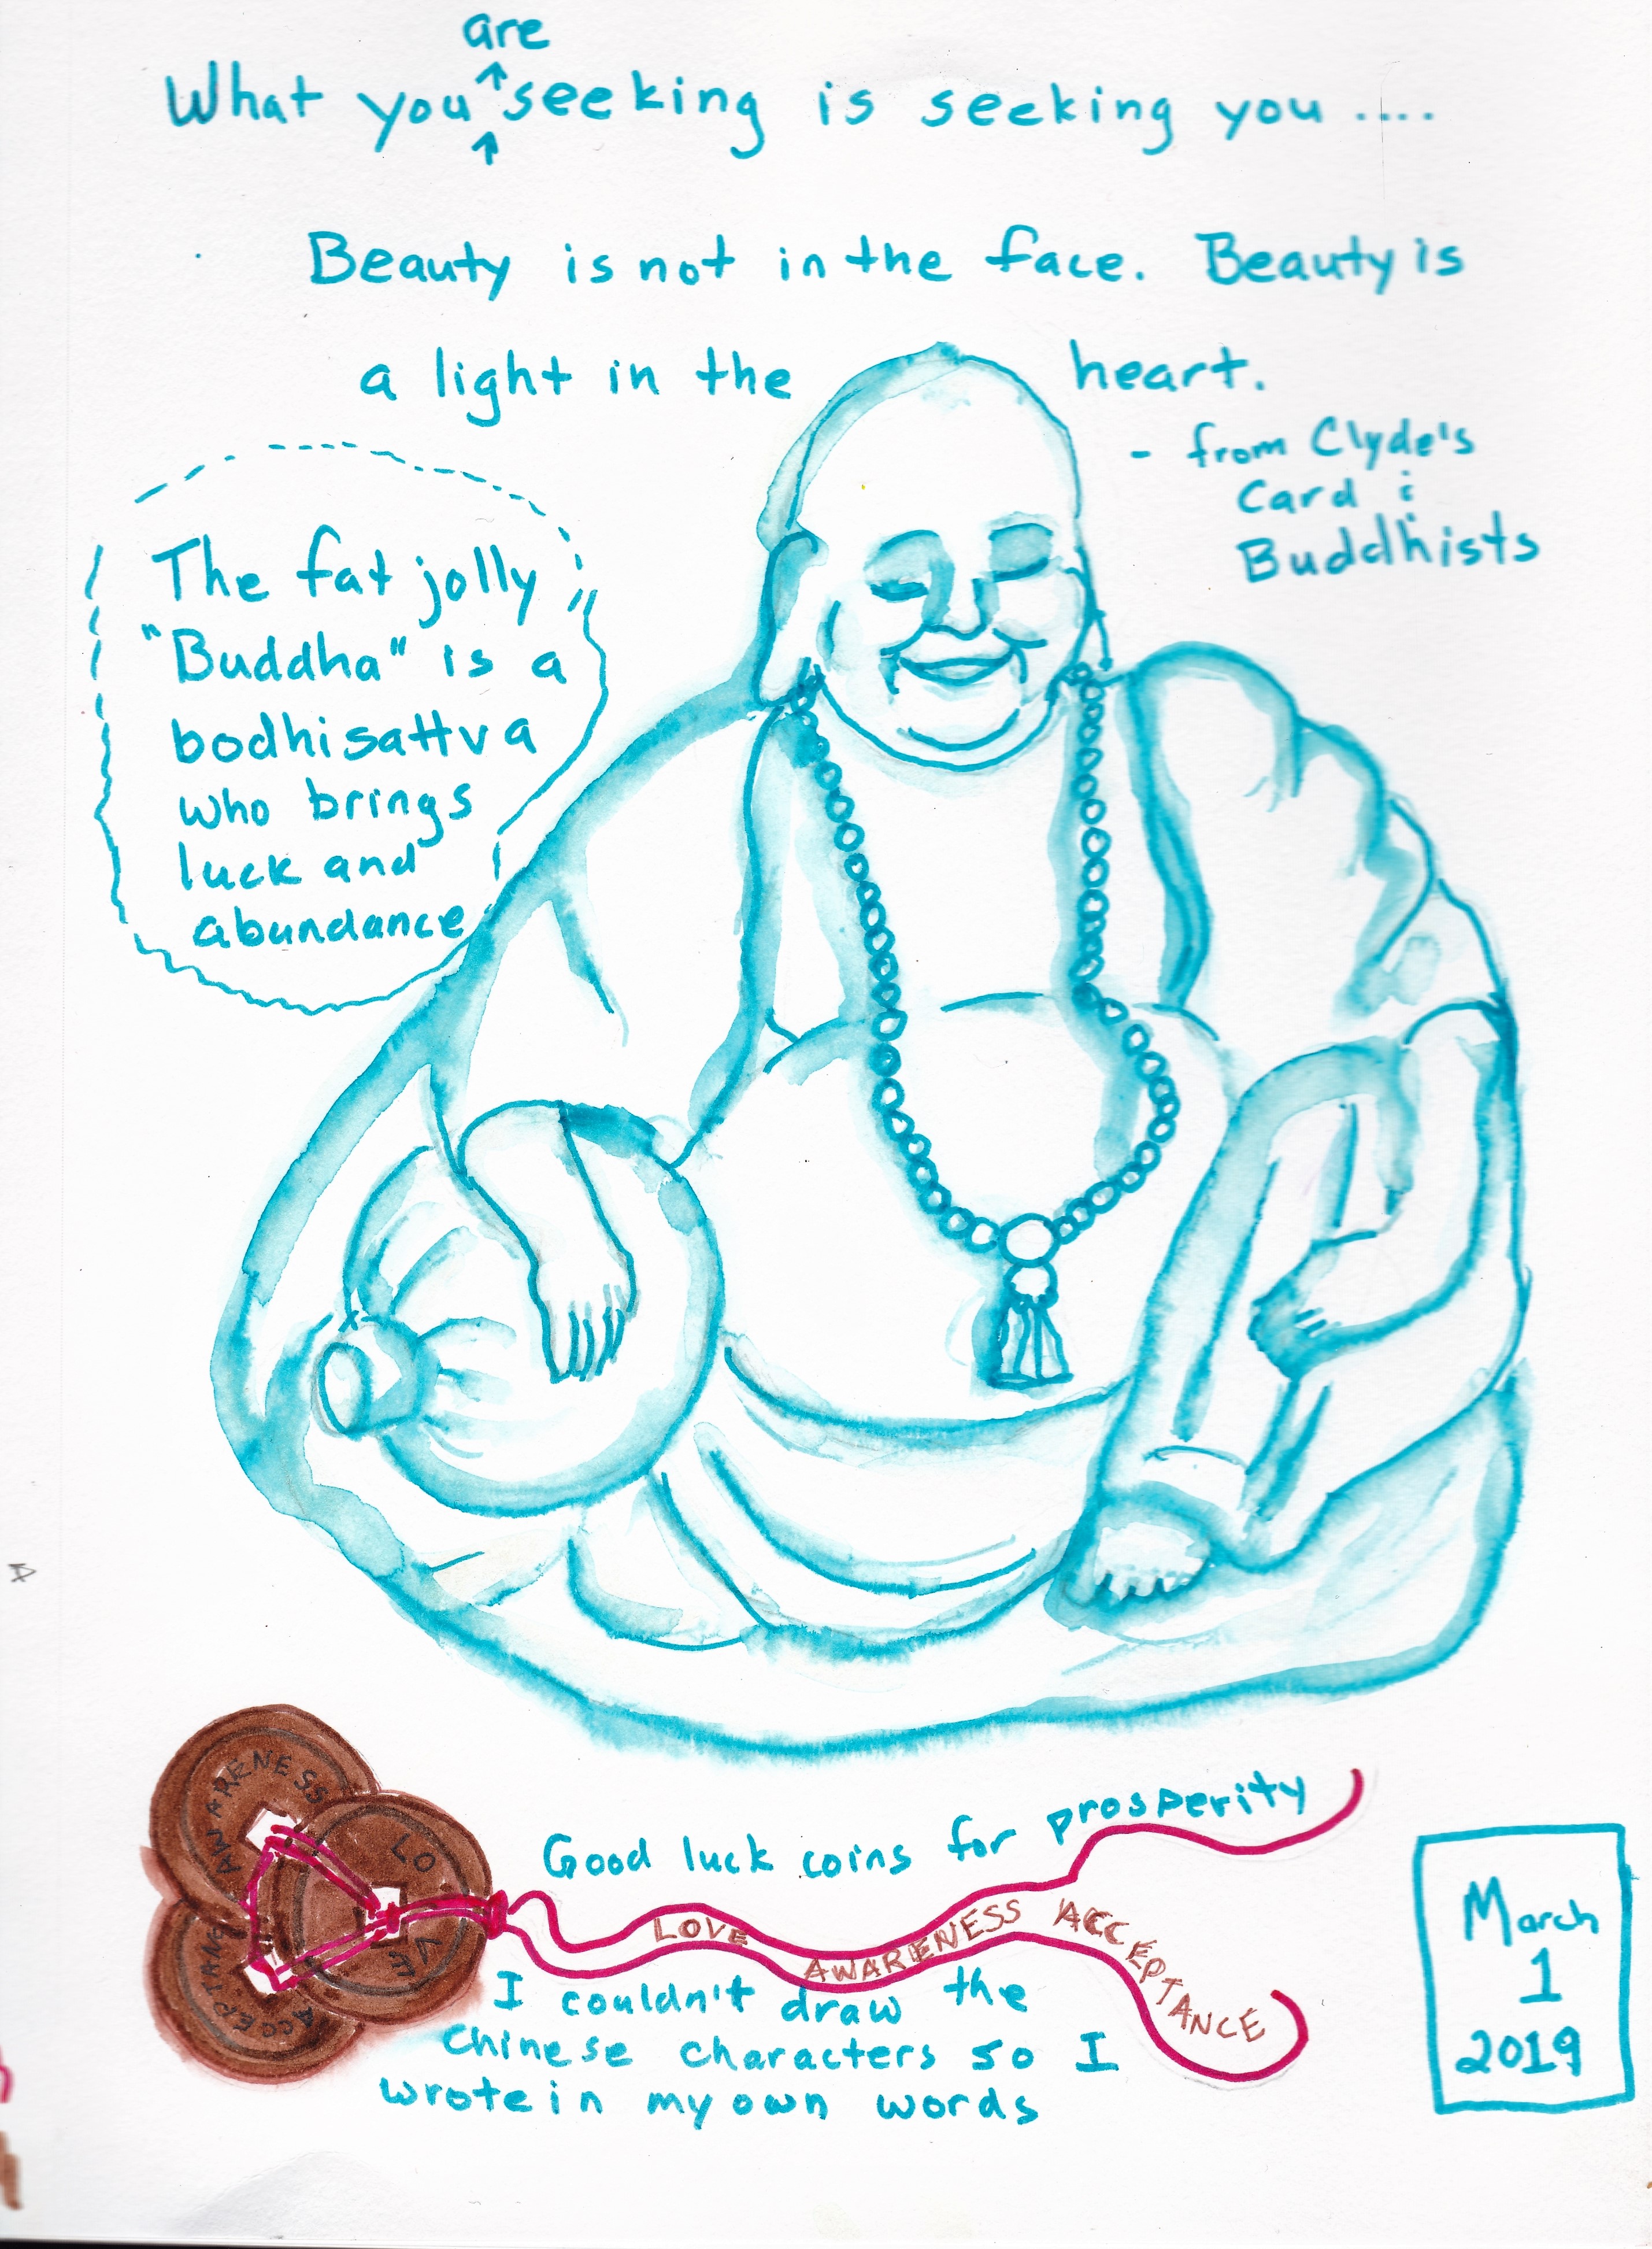 are
What you seeking is seeking you ....
Beauty is not in the face. Beauty is
a light in the heart.
- from Clyde's
Card &
Buddhists
The fat jolly
"Buddha" is a
bodhisattva
who brings
luck and
abundance
AWARENESS
LOVE
ACCEPTANC
Good luck coins for prosperity
LOVE AWARENESS ACCEPTANCE
I couldn't draw the
Chinese characters so I
wrote in my own words
March
1
2019